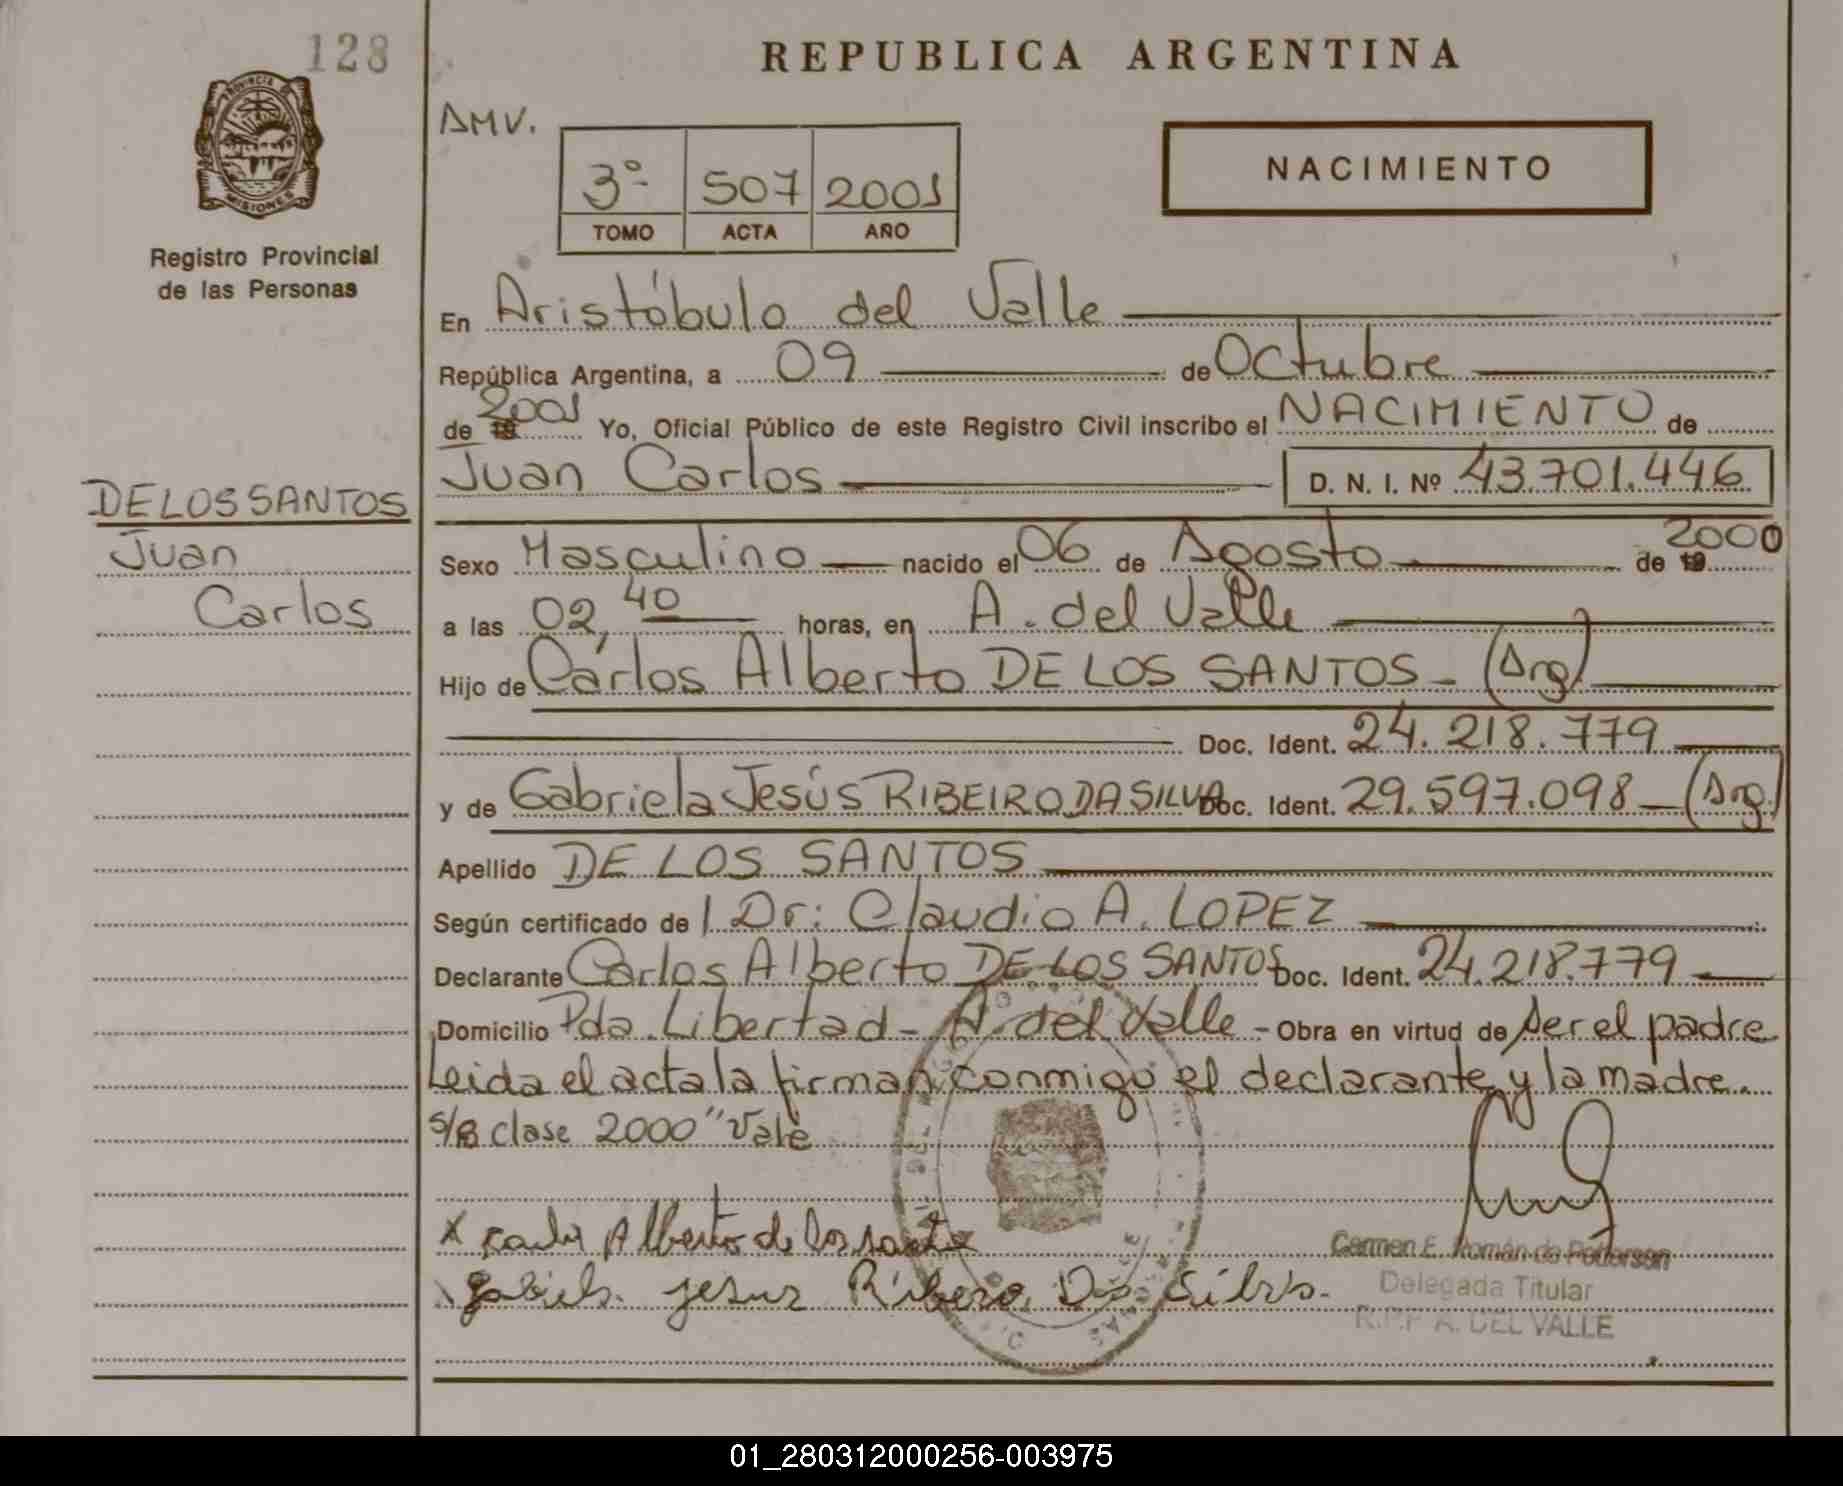 128
REPUBLICA ARGENTINA
PROVINCIA DE
MISIONES
AMV.
3º- 507 2001
TOMO ACTA AÑO
NACIMIENTO
Registro Provincial
de las Personas
En Aristóbulo del Valle
República Argentina, a 09 de Octubre
de 2001 Yo, Oficial Público de este Registro Civil inscribo el NACIMIENTO de
Juan Carlos D. N. I. Nº 43.701.446
DE LOS SANTOS
Juan
Carlos
Sexo Masculino nacido el 06 de Agosto de 2000
a las 02,40 horas, en A. del Valle
Hijo de Carlos Alberto DE LOS SANTOS - (Arg)
Doc. Ident. 24.218.779
y de Gabriela Jesús RIBEIRO DA SILVA Doc. Ident. 29.597.098 - (Arg.)
Apellido DE LOS SANTOS
Según certificado de l Dr: Claudio A. LOPEZ
Declarante Carlos Alberto DE LOS SANTOS Doc. Ident. 24.218.779
Domicilio Pda. Libertad - A. del Valle - Obra en virtud de ser el padre
Leida el acta la firman conmigo el declarante y la madre.
s/B clase 2000" Vale
x Alberto de los
Jesus Ribero Da Silva.
Carmen E. Román de
Delegada Titular
R.P.P A. DEL VALLE
01_280312000256-003975